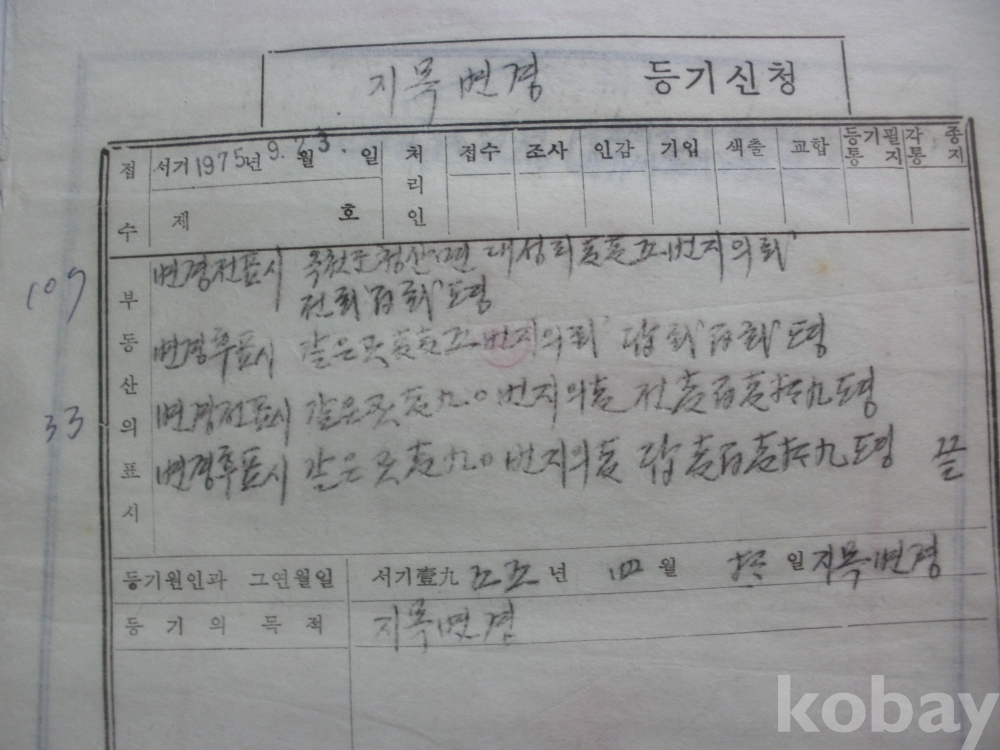 지목변경 등기신청
접수 서기1975년 9. 23. 월 일 처리인 접수 조사 인감 기입 색출 교합 등기필통지 각종통지
제 호
부동산의표시
109
변경전표시 옥천군청산면 대성리壹壹五번지의貳
전貳百貳평
변경후표시 같은곳壹壹五번지의貳 답貳百貳평
33
변경전표시 같은곳壹九〇번지의壹 전壹百壹拾九평
변경후표시 같은곳壹九〇번지의壹 답壹百壹拾九평 끝
등기원인과 그연월일 서기壹九五五년 四월 일 지목변경
등기의 목적 지목변경
kobay